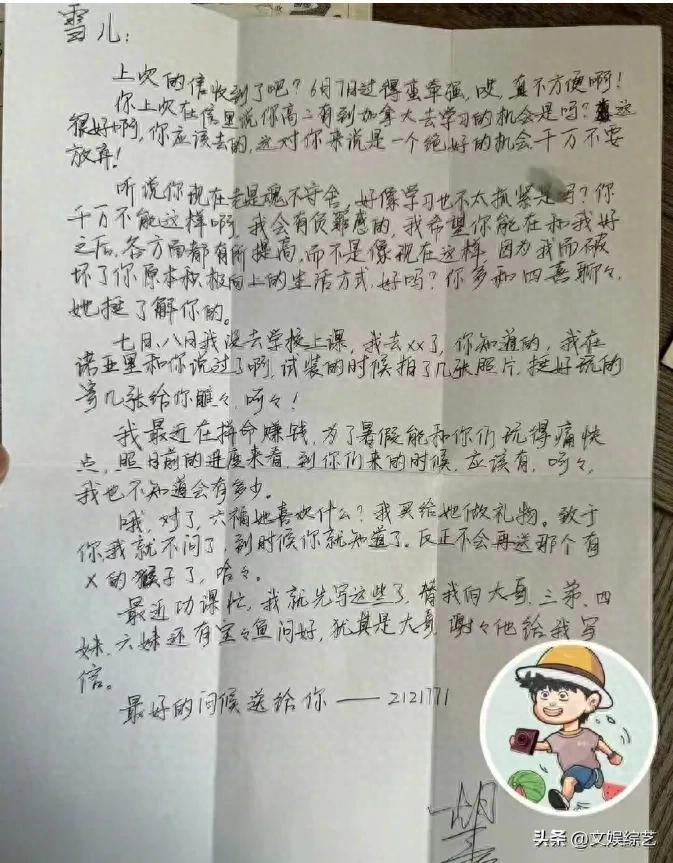 雪儿：
上次的信收到了吧？6月7日过得蛮牵强，哎，真不方便啊！
你上次在信里说你高二有到加拿大去学习的机会是吗？这
很好啊，你应该去的，这对你来说是一个绝好的机会千万不要
放弃！
听说你现在老是魂不守舍，好像学习也不太抓紧是吗？你
千万不能这样啊，我会有负罪感的，我希望你能在和我好
之后，各方面都有所提高，而不是像现在这样，因为我而破
坏了你原本积极向上的生活方式，好吗？你多和四喜聊々，
她挺了解你的。
七日、八日我没去学校上课，我去xx了，你知道的，我在
诺亚里和你说过了啊，试装的时候拍了几张照片，挺好玩的
寄几张给你瞧々，呵々！
我最近在拼命赚钱，为了暑假能和你们玩得痛快
点，照目前的进度来看，到你们来的时候，应该有，呵々，
我也不知道会有多少。
哦，对了，六福她喜欢什么？我买给她做礼物。致于
你我就不问了，到时候你就知道了。反正不会再送那个有
x的猴子了，哈々。
最近功课忙，我就先写这些了，替我向大哥、三弟、四
妹、六妹还有宝々鱼问好，尤其是大哥，谢々他给我写
信。
最好的问候送给你——2121771
胡
头条 @文娱综艺